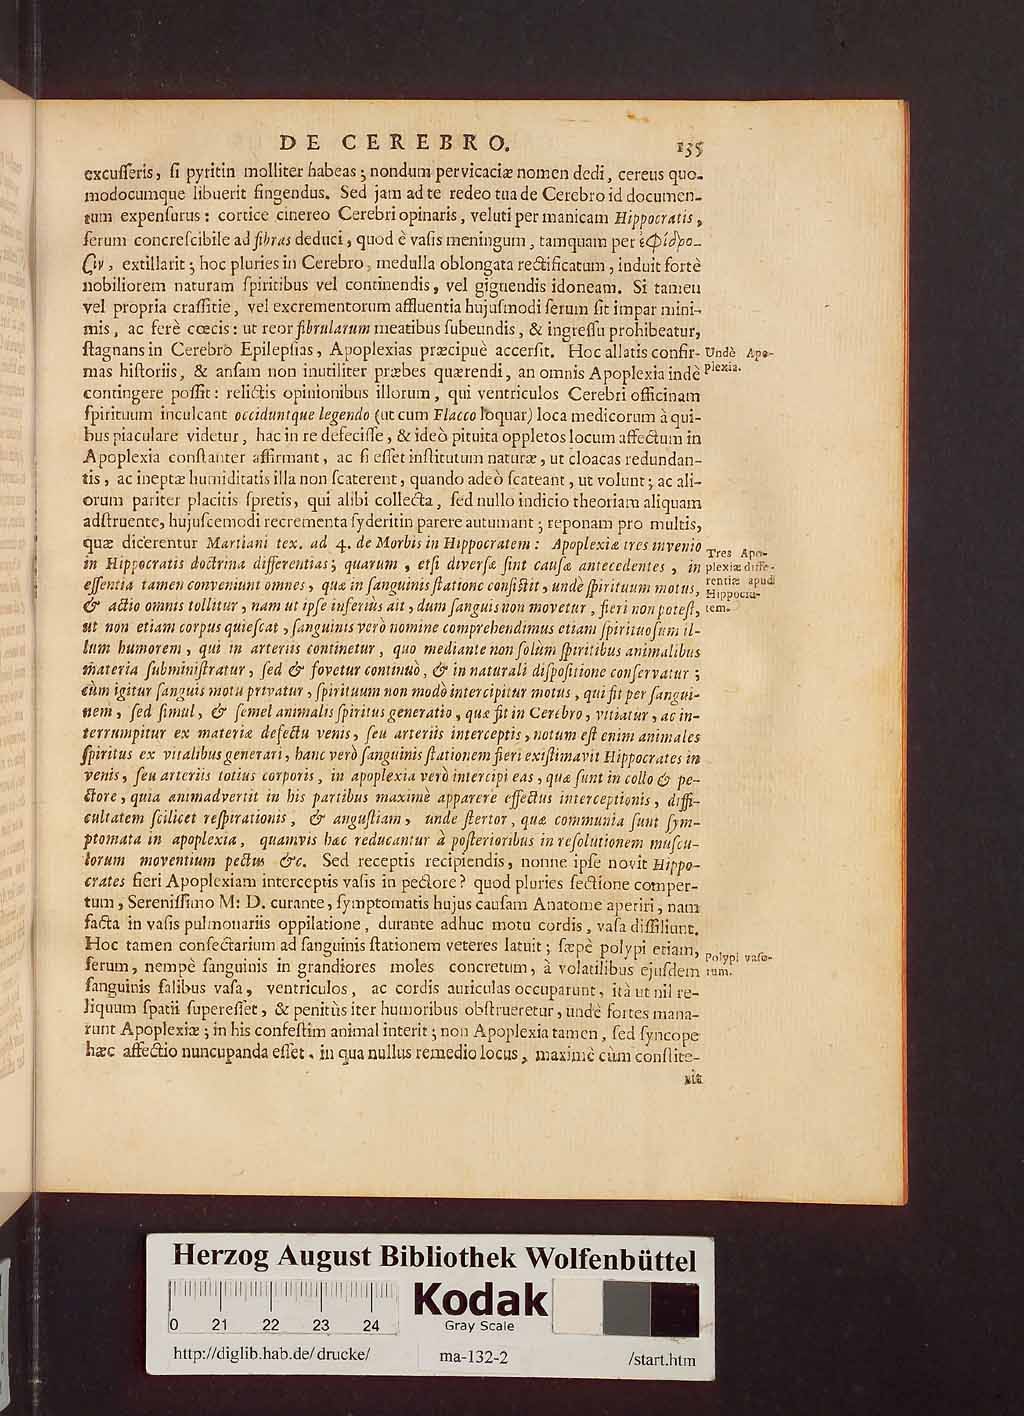 DE CEREBRO. 135
excuſſeris, ſi pyritin molliter habeas; nondum pervicaciæ nomen dedi, cereus quo-
modocumque libuerit fingendus. Sed jam ad te redeo tua de Cerebro id documen-
tum expenſurus: cortice cinereo Cerebri opinaris, veluti per manicam Hippocratis,
ſerum concreſcibile ad fibras deduci, quod è vaſis meningum, tamquam per ἐφίδρο-
ſιν, extillarit; hoc pluries in Cerebro, medulla oblongata rectificatum, induit fortè
nobiliorem naturam ſpiritibus vel continendis, vel gignendis idoneam. Si tamen
vel propria craſſitie, vel excrementorum affluentia hujuſmodi ſerum ſit impar mini-
mis, ac ferè cœcis: ut reor fibrularum meatibus ſubeundis, & ingreſſu prohibeatur,
ſtagnans in Cerebro Epilepſias, Apoplexias præcipuè accerſit. Hoc allatis confir-
mas hiſtoriis, & anſam non inutiliter præbes quærendi, an omnis Apoplexia indè
Undè Apo-
plexia.
contingere poſſit: relictis opinionibus illorum, qui ventriculos Cerebri officinam
ſpirituum inculcant occiduntque legendo (ut cum Flacco loquar) loca medicorum à qui-
bus piaculare videtur, hac in re defeciſſe, & ideò pituita oppletos locum affectum in
Apoplexia conſtanter affirmant, ac ſi eſſet inſtitutum naturæ, ut cloacas redundan-
tis, ac ineptæ humiditatis illa non ſcaterent, quando adeò ſcateant, ut volunt; ac ali-
orum pariter placitis ſpretis, qui alibi collecta, ſed nullo indicio theoriam aliquam
adſtruente, hujuſcemodi recrementa ſyderitin parere autumant; reponam pro multis,
quæ dicerentur Martiani tex. ad 4. de Morbis in Hippocratem: Apoplexiæ tres invenio
in Hippocratis doctrina differentias; quarum, etſi diverſæ ſint cauſæ antecedentes, in
eſſentia tamen conveniunt omnes, quæ in ſanguinis ſtatione conſiſtit, undè ſpirituum motus,
& actio omnis tollitur, nam ut ipſe inferiùs ait, dum ſanguis non movetur, fieri non poteſt,
Tres Apo-
plexiæ diffe-
rentiæ apud
Hippocra-
tem.
ut non etiam corpus quieſcat, ſanguinis verò nomine comprehendimus etiam ſpirituoſum il-
lum humorem, qui in arteriis continetur, quo mediante non ſolùm ſpiritibus animalibus
materia ſubminiſtratur, ſed & fovetur continuò, & in naturali diſpoſitione conſervatur;
cùm igitur ſanguis motu privatur, ſpirituum non modò intercipitur motus, qui fit per ſangui-
nem, ſed ſimul, & ſemel animalis ſpiritus generatio, quæ fit in Cerebro, vitiatur, ac in-
terrumpitur ex materiæ defectu venis, ſeu arteriis interceptis, notum eſt enim animales
ſpiritus ex vitalibus generari, hanc verò ſanguinis ſtationem fieri exiſtimavit Hippocrates in
venis, ſeu arteriis totius corporis, in apoplexia verò intercipi eas, quæ ſunt in collo & pe-
ctore, quia animadvertit in his partibus maximè apparere effectus interceptionis, diffi-
cultatem ſcilicet reſpirationis, & anguſtiam, unde ſtertor, quæ communia ſunt ſym-
ptomata in apoplexia, quamvis hæc reducantur à poſterioribus in reſolutionem muſcu-
lorum moventium pectus &c. Sed receptis recipiendis, nonne ipſe novit Hippo-
crates fieri Apoplexiam interceptis vaſis in pectore? quod pluries ſectione comper-
tum, Sereniſſimo M: D. curante, ſymptomatis hujus cauſam Anatome aperiri, nam
facta in vaſis pulmonariis oppilatione, durante adhuc motu cordis, vaſa diſſiliunt.
Hoc tamen conſectarium ad ſanguinis ſtationem veteres latuit; ſæpè polypi etiam,
ſerum, nempè ſanguinis in grandiores moles concretum, à volatilibus ejuſdem
Polypi vaſo-
rum.
ſanguinis ſalibus vaſa, ventriculos, ac cordis auriculas occuparunt, ità ut nil re-
liquum ſpatii ſupereſſet, & penitùs iter humoribus obſtrueretur, undè fortes mana-
runt Apoplexiæ; in his confeſtim animal interit; non Apoplexia tamen, ſed ſyncope
hæc affectio nuncupanda eſſet, in qua nullus remedio locus, maximè cùm conſtite-
rit
Herzog August Bibliothek Wolfenbüttel
Kodak
Gray Scale
0 21 22 23 24
http://diglib.hab.de/drucke/ ma-132-2 /start.htm